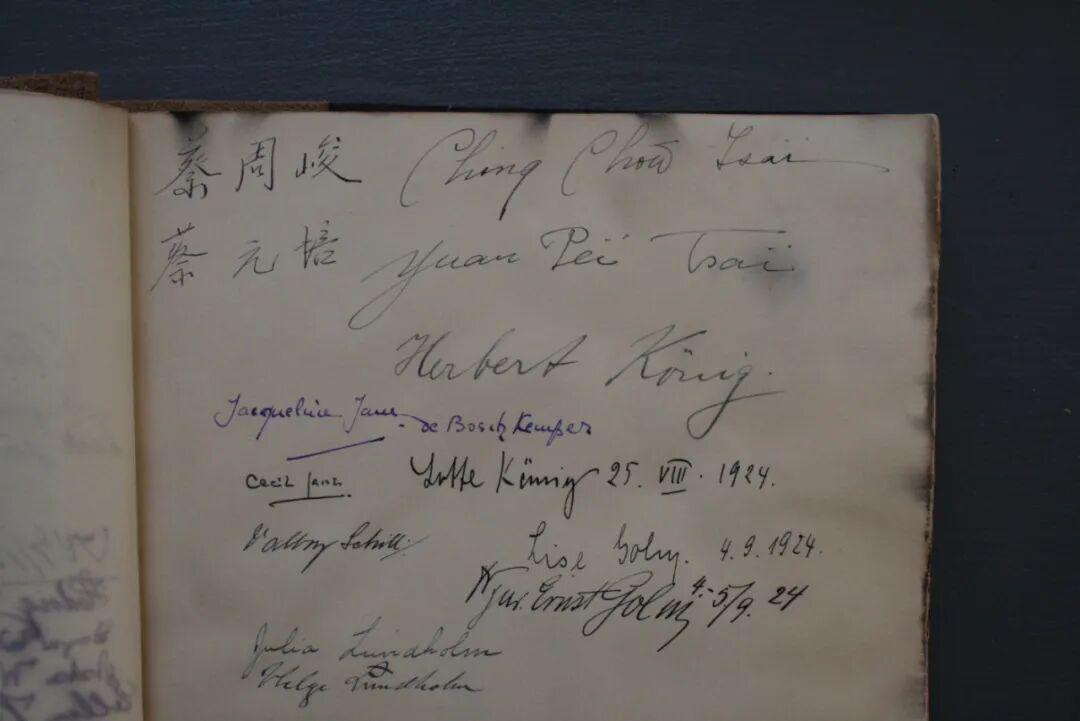 蔡周峻 Ching Chow Tsai
蔡元培 Yuan Pëi Tsaï
Herbert König.
Jacqueline Janse
de Bosch Kemper
Cecil Janse. Lotte König 25. VIII. 1924.
Lise Golm. 4.9.1924.
jur. Ernst Golm 4.-5/9. 24
Julia Lundholm
Helge Lundholm